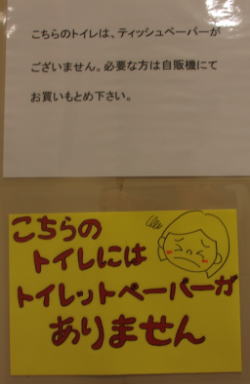 こちらのトイレは、ティッシュペーパーが
ございません。必要な方は自販機にて
お買いもとめ下さい。
こちらの
トイレには
トイレットペーパーが
ありません